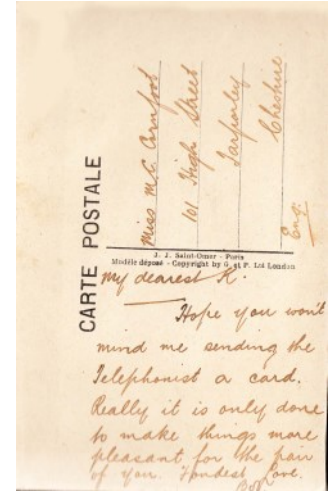 CARTE POSTALE
Miss M.C.
101 High Street
Tarporley
Cheshire
Eng.
J. J. Saint-Omer - Paris
Modèle déposé - Copyright by G. et P. Ltd London
My dearest K.
Hope you won't
mind me sending the
Telephonist a card.
Really it is only done
to make things more
pleasant for the pair
of you. Fondest love.
Bob